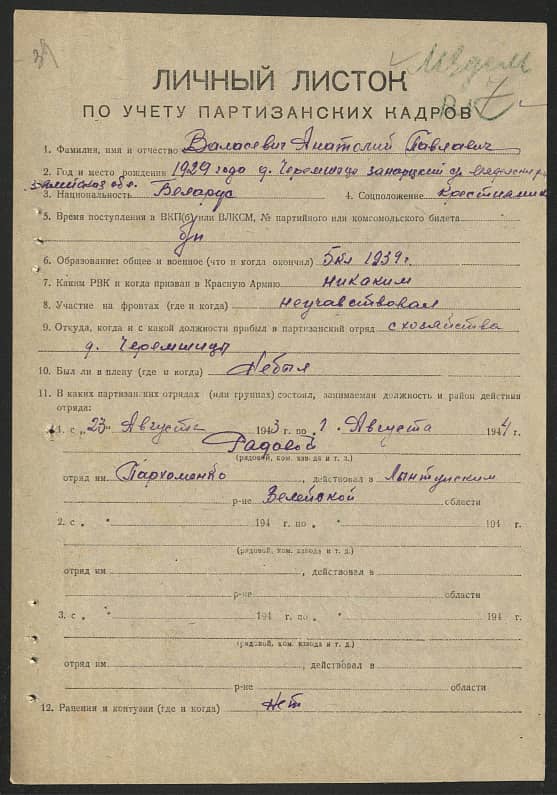 ЛИЧНЫЙ ЛИСТОК
ПО УЧЕТУ ПАРТИЗАНСКИХ КАДРОВ
1. Фамилия, имя и отчество Валасевич Анатолий Павлавич
2. Год и место рождения 1929 года д. Черемшица
3. Национальность Беларус 4. Соцположение
5. Время поступления в ВКП(б) или ВЛКСМ, № партийного или комсомольского билета
б/п
6. Образование: общее и военное (что и когда окончил) 5 кл 1939 г.
7. Каким РВК и когда призван в Красную Армию никаким
8. Участие на фронтах (где и когда) неучавствовал
9. Откуда, когда и с какой должности прибыл в партизанский отряд с хозяйства
д. Черемшицы
10. Был ли в плену (где и когда) Небыл
11. В каких партизанских отрядах (или группах) состоял, занимаемая должность и район действия
отряда:
1. с „23“ Августа 1943 г. по 1. Августа 1944 г.
Радовой
(рядовой, ком. взвода и т. д.)
отряд им Пархоменко, действовал в Лынтупским
р-не Велейской области
2. с „ “ 194 г. по „ “ 194 г.
(рядовой, ком. взвода и т. д.)
отряд им , действовал в
р-не области
3. с „ “ 194 г. по „ “ 194 г.
(рядовой, ком. взвода и т. д.)
отряд им , действовал в
р-не области
12. Ранения и контузии (где и когда) Нет